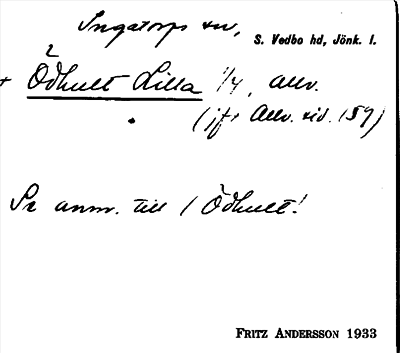 Ingatorps sn,
S. Vedbo hd, Jönk. l.
2
+ Ödhult Lilla 1/4, Allv.
(jfr Allv. sid. 159)
Se anm. till 1 Ödhult!
FRITZ ANDERSSON 1933